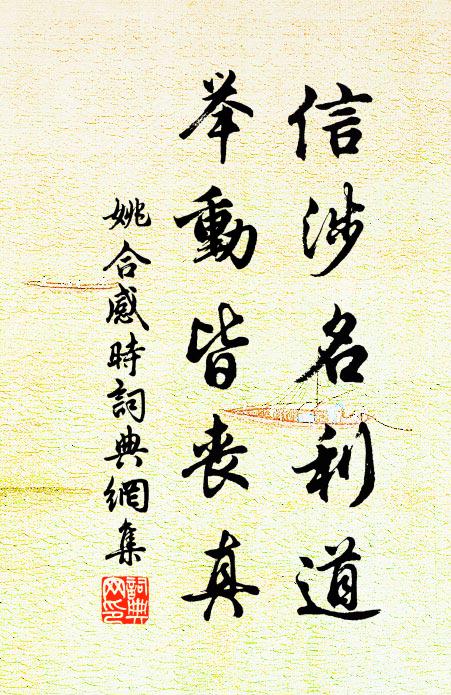 信涉名利道
举動皆丧真
姚合感時詞典網集
詞典网印